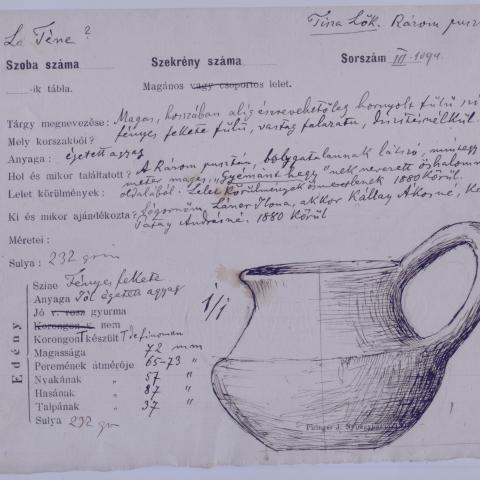 La Tène ?
Tisza Lök. Rárom pusz
Szoba száma
Szekrény száma
Sorszám III. 1094.
-ik tábla.
Magános vagy csoportos lelet.
Tárgy megnevezése: Magas, hosszában alig észrevehetőleg hornyolt fülű
Mely korszakból? fényes fekete fülű, vastag falazatu, díszítés nélkül.
Anyaga: égetett agyag
Hol és mikor találtatott? A Rárom pusztán, bolygatatlannak látszó, mintegy
méter magas, "Gyémánt hegy"nek nevezett őshalom
Lelet körülmények: oldalából. Lelet körülmények ismeretlenek 1880 körül.
Ki és mikor ajándékozta? Sógornőm, Láner Ilona, akkor Kállay Ákosné,
Patay Andrásné. 1880 körül
Méretei:
Sulya: 232 grm
Edény
Szine Fényes fekete
Anyaga Jól égetett agyag
Jó v. rosz gyurma
Korongon v. nem
Korongon készült
Magassága 72 mm
Peremének átmérője 65-73 "
Nyakának " 57 "
Hasának " 87 "
Talpának " 37 "
Sulya 232 gr
1/1
Piringer J. Nyíregyh